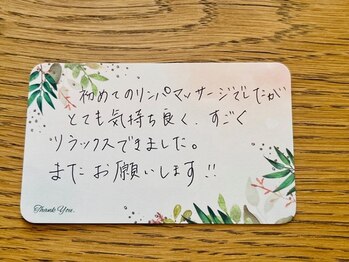 初めてのリンパマッサージでしたが
とても気持ち良く、すごく
リラックスできました。
またお願いします!!
Thank You.